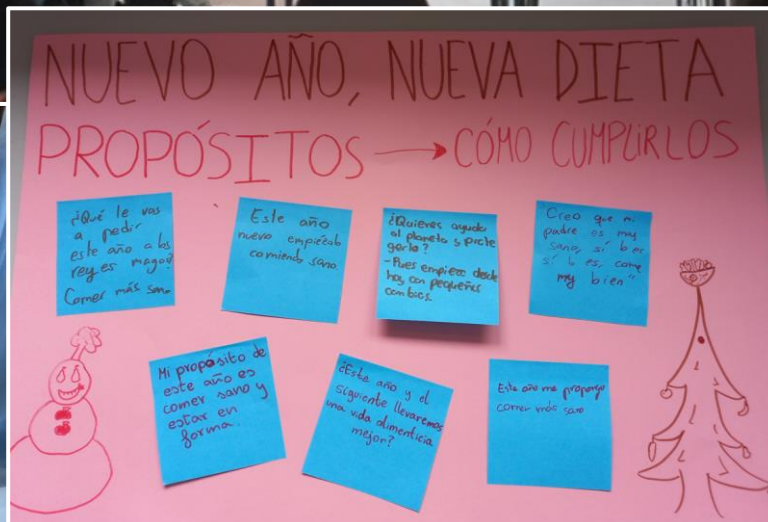 NUEVO AÑO, NUEVA DIETA
PROPÓSITOS → CÓMO CUMPLIRLOS
¿Qué le vas
a pedir
este año a los
reyes magos?
Comer más sano
Este año
nuevo empiezo
comiendo sano
¿Quieres ayudar
al planeta y prote
gerlo?
-Pues empieza desde
hoy con pequeños
cambios.
Creo que mi
padre es muy
sano, sí
sí, come
muy bien"
Mi propósito de
este año es
comer sano y
estar en
forma.
¿Este año y el
siguiente llevaremos
una vida alimenticia
mejor?
Este año me propongo
comer más sano